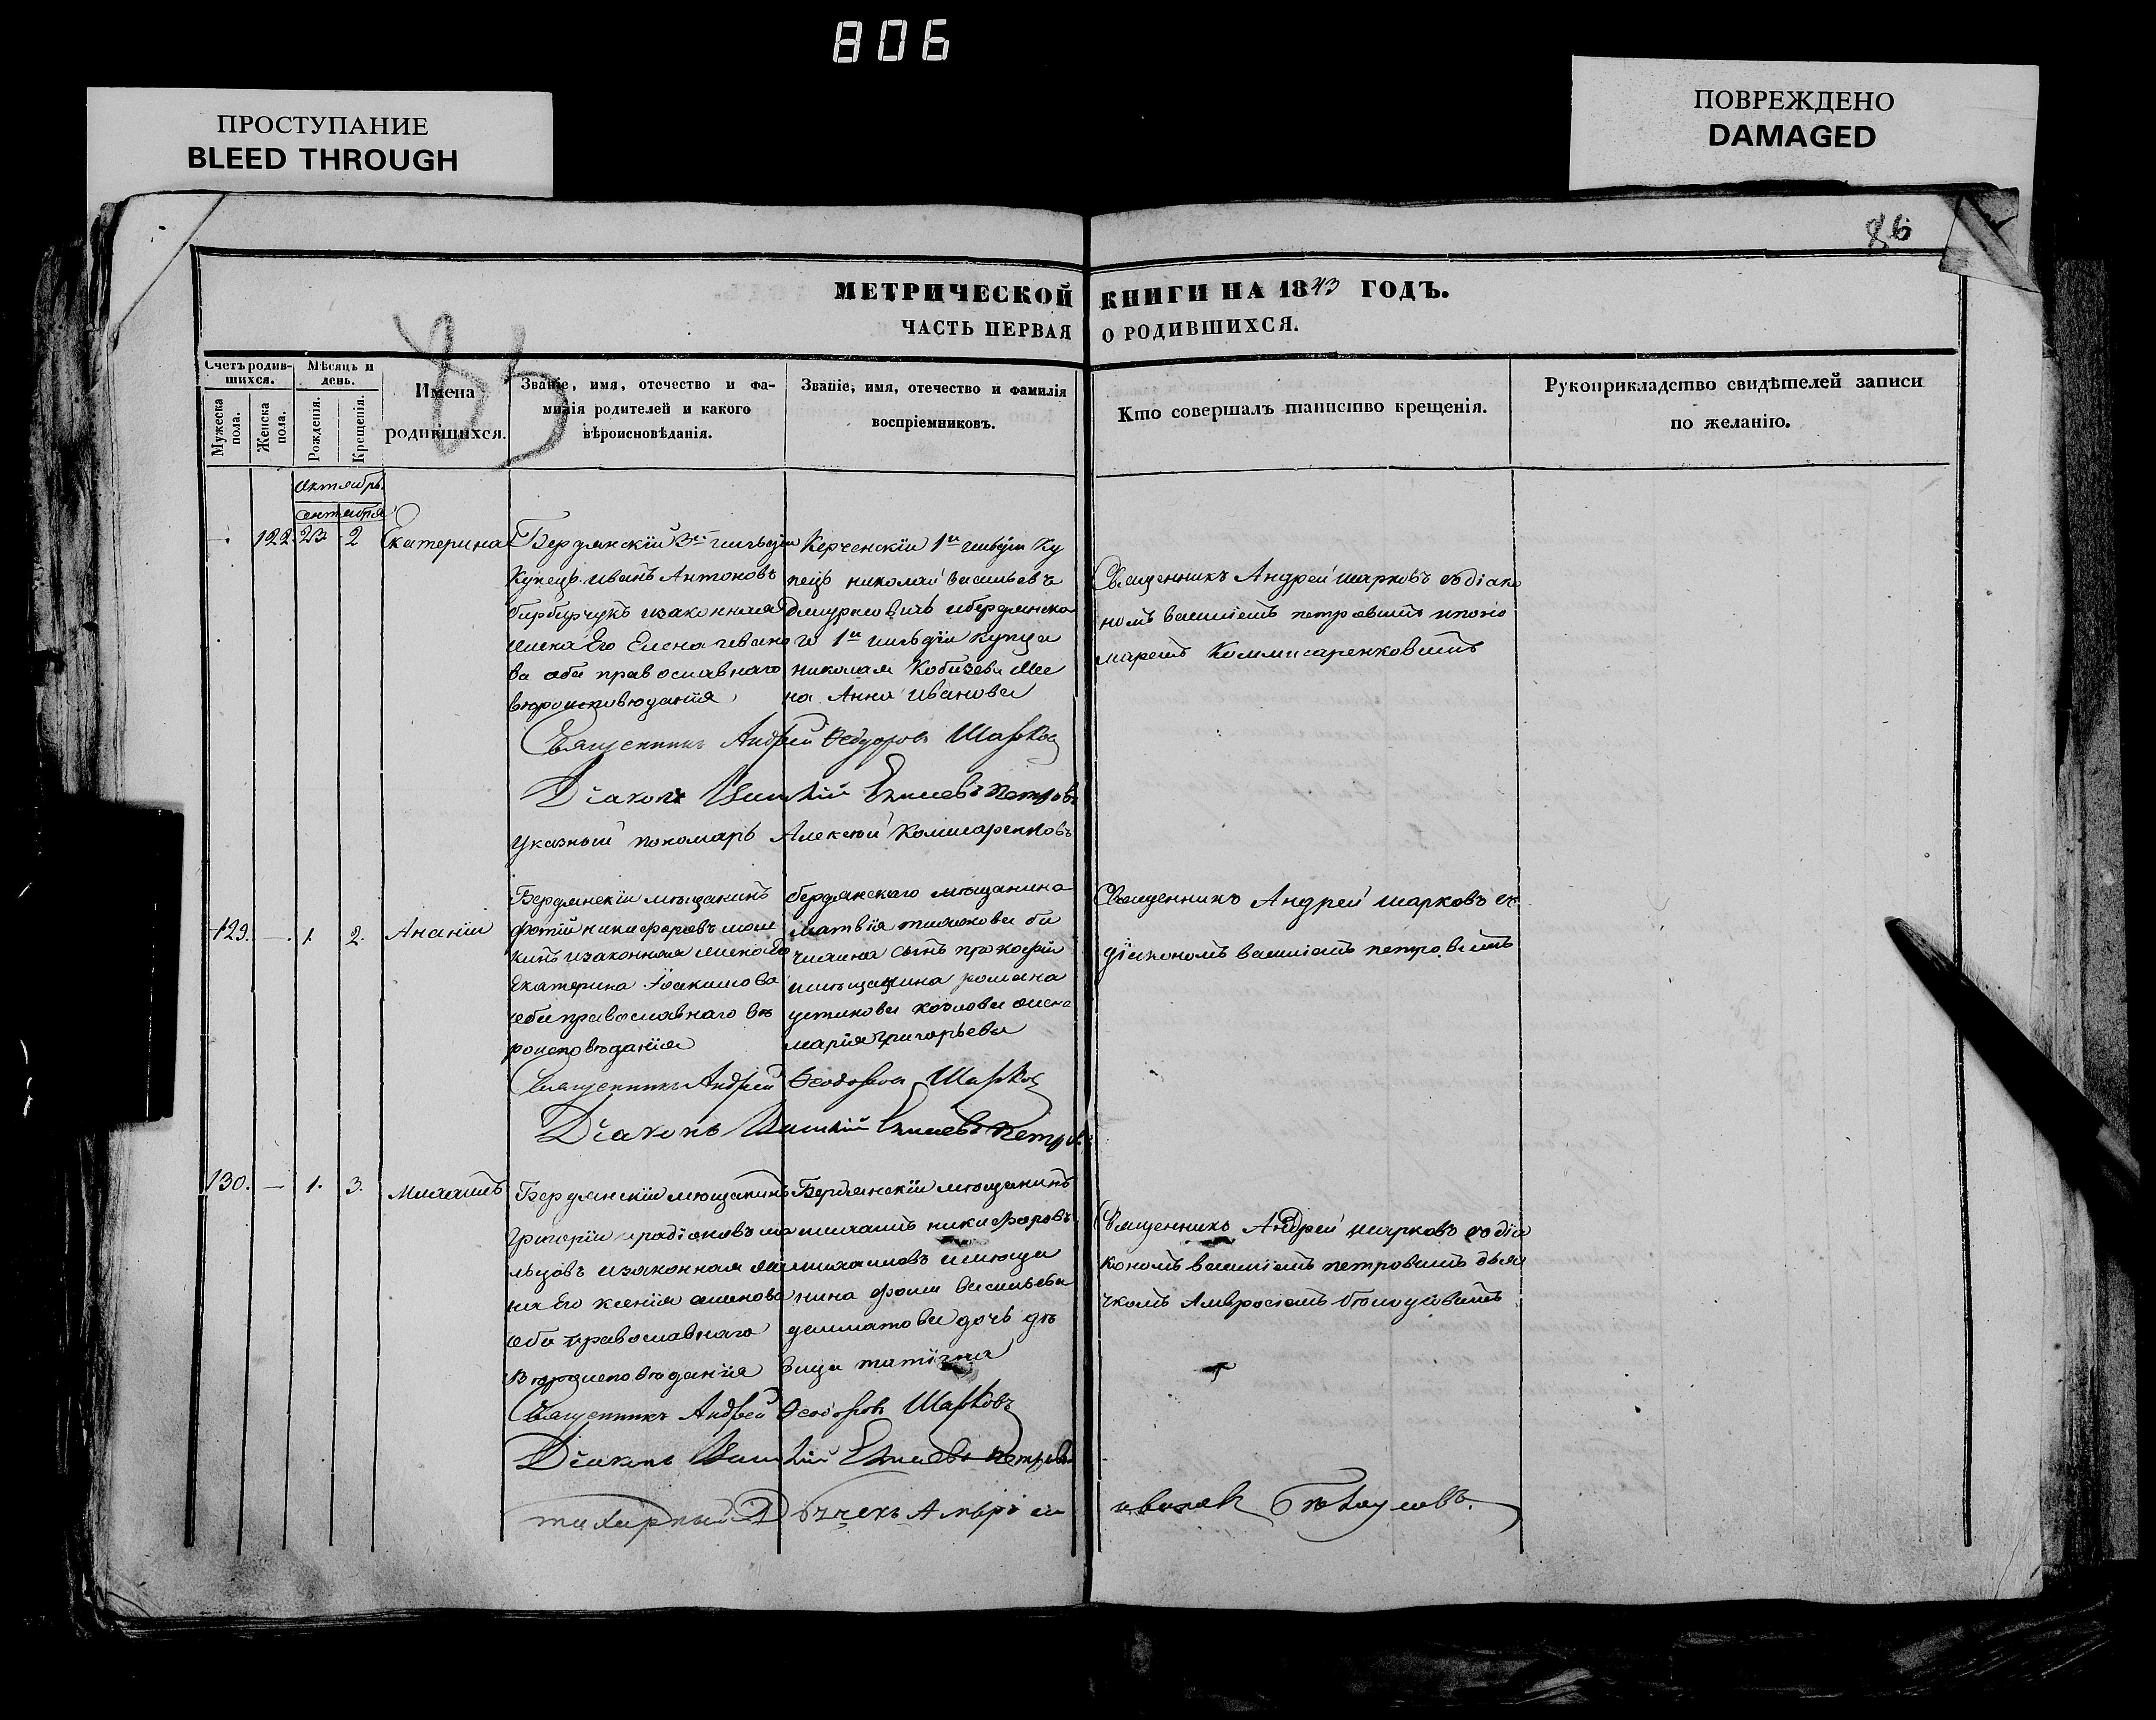 806
ПРОСТУПАНИЕ
BLEED THROUGH
ПОВРЕЖДЕНО
DAMAGED
86
МЕТРИЧЕСКОЙ КНИГИ НА 1843 ГОДЪ.
ЧАСТЬ ПЕРВАЯ О РОДИВШИХСЯ.
85
Счетъ родив-
шихся.
Мужеска
пола.
Женска
пола.
Мѣсяцъ и
день.
Рожденія.
Крещенія.
Имена
родившихся.
Званіе, имя, отчество и фа-
милія родителей и какого
вѣроисповѣданія.
Званіе, имя, отечество и фамилія
воспріемниковъ.
Кто совершалъ таинство крещенія.
Рукоприкладство свидѣтелей записи
по желанію.
Октябрь
сентября
122 23 2 Екатерина
Бердянскій 3й гильдіи
Купецъ Иванъ Антоновъ
изаконная
жена Его Елена Ивано
ва оба православнаго
вѣроисповѣданія
Керченскій 1й гильдіи Ку
пецъ николай васильевъ
ибердянска
го 1й гильдіи купца
николая Кобызева Же
на Анна Иванова
Священникъ Андрей шарковъ съдіако
номъ василіемъ петровымъ ипоно
маремъ Коммисаренковымъ
Священникъ Андрей Ѳеодоровъ Шарковъ
Діаконъ Василій Петровъ
указный пономарь Алексѣй Комисаренковъ
129. — 1. 2. Ананій
Бердянскій мѣщанинъ
фотій никифоровъ
кинъ изаконная жена Его
Екатерина Іоакимова
оба православнаго вѣ
роисповѣданія
бердянскаго мѣщанина
матвѣя
сынъ прокофій
имѣщанина романа
устинова козлова жена
марія григорьева
Священникъ Андрей шарковъ съ
діакономъ василіемъ петровымъ
Священникъ Андрей Ѳеодоровъ Шарковъ
Діаконъ Василій Петровъ
130. — 1. 3. Михаилъ
Бердянскій мѣщанинъ
Григорій иродіоновъ ма
льцовъ изаконная же
на Его ксенія
оба православнаго
вѣроисповѣданія
Бердянскій мѣщанинъ
михаилъ никифоровъ
имѣща
нина фомы васильева
дочь дѣ
вица татіяна
Священникъ Андрей шарковъ съдіа
кономъ василіемъ петровымъ дья
чкомъ Амвросіемъ
Священникъ Андрей Ѳеодоровъ Шарковъ
Діаконъ Василій Петровъ